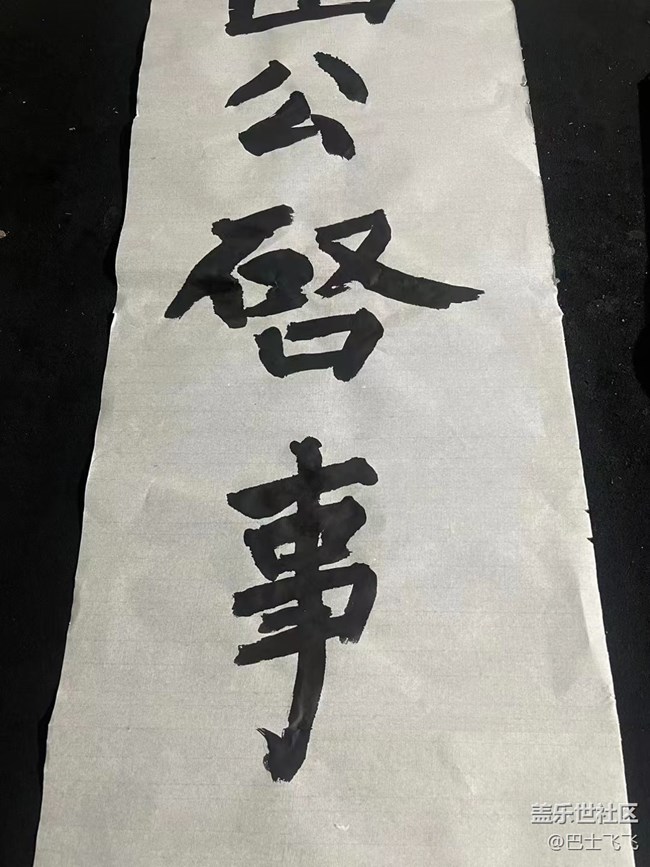 山公啓事
盖乐世社区
@巴士飞飞